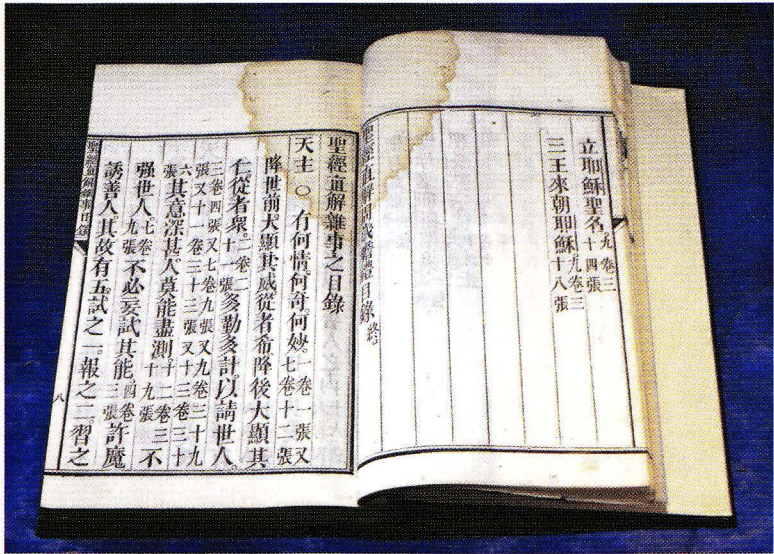 立耶穌聖名九卷三十四張
三王來朝耶穌九卷三十八張
聖經直解周歲瞻禮目錄終
聖經直解雜事之目錄
天主○有何情何竒何妙一卷一張又七卷十二張
降世前大顯其威從者希降後大顯其
仁從者衆二卷二十一張多勤多計以請世人
三卷四張又七卷九張又九卷三十九張又十卷三十三張又十三卷三十
六張其意深甚人莫能盡測十二卷三十九張不
强世人七卷九張不必妄試其能四卷三張許魔
誘善人其故有五試之一報之二習之
聖經直解雜事目錄
八